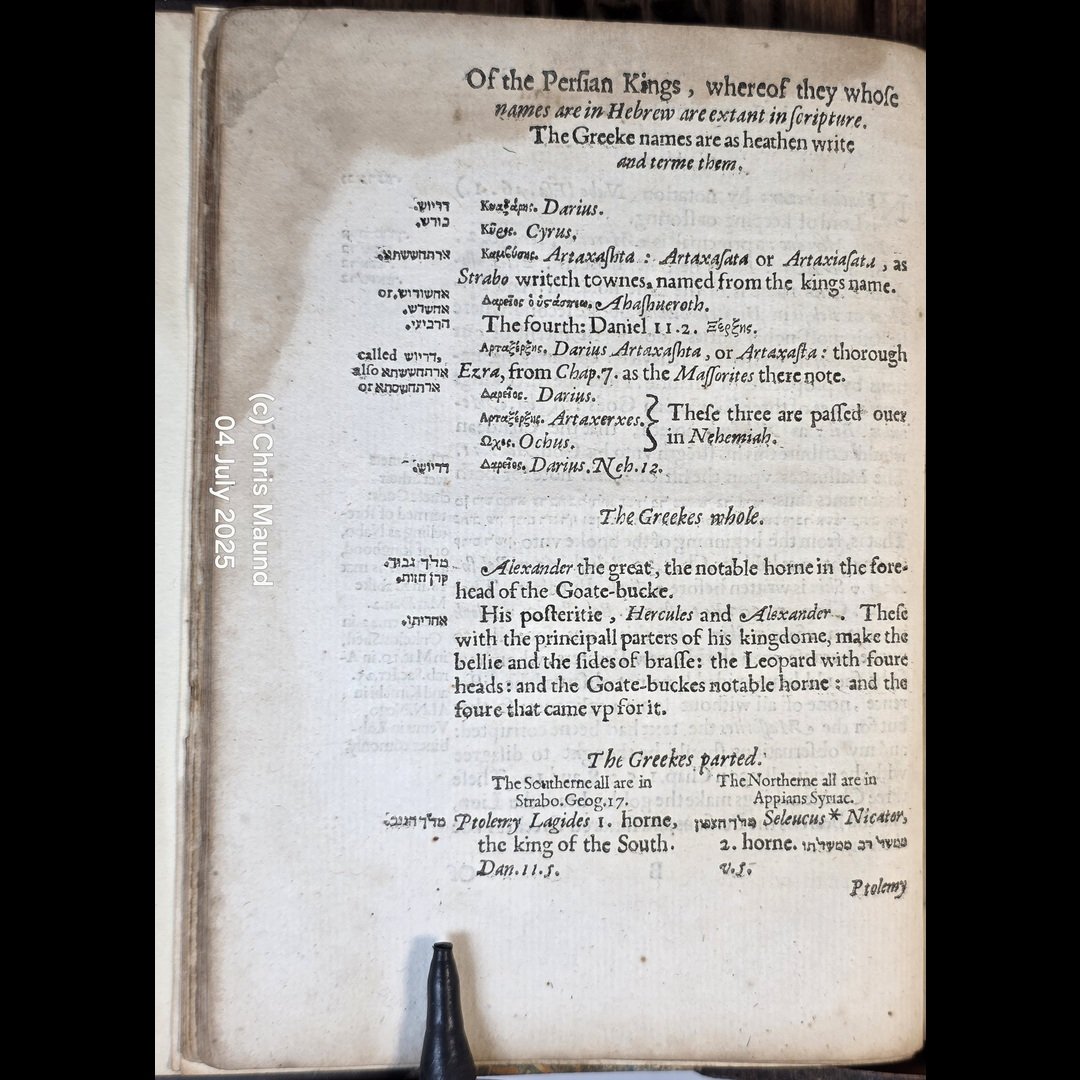 Of the Perſian Kings , whereof they whoſe
names are in Hebrew are extant in ſcripture.
The Greeke names are as heathen write
and terme them.
דריוש. Κυαξάρης. Darius.
כורש. Κῦρος. Cyrus.
ארתחששתא. Καμβύσης. Artaxaſhta : Artaxaſata or Artaxiaſata , as
Strabo writeth townes, named from the kings name.
אחשורוש.or Δαρεῖος ὁ ὑςάσπεω. Ahaſhueroth.
אחשרש.
הרביעי. The fourth: Daniel 11.2. Ξέρξης.
called דריוש, Αρταξέρξης. Darius Artaxaſhta , or Artaxaſta : thorough
alſo ארתחששתא Ezra, from Chap.7. as the Maſſorites there note.
or ארתחשסתא
Δαρεῖος. Darius.
Αρταξέρξης. Artaxerxes. Theſe three are paſſed ouer
Ωχος. Ochus. in Nehemiah.
דריוש. Δαρεῖος. Darius. Neh.12.
The Greekes whole.
מלך גבור. Alexander the great , the notable horne in the fore-
קרן חזות. head of the Goate-bucke.
אחריתו. His poſteritie , Hercules and Alexander . Theſe
with the principall parters of his kingdome, make the
bellie and the ſides of braſſe: the Leopard with foure
heads: and the Goate-buckes notable horne : and the
foure that came vp for it.
The Greekes parted.
The Southerne all are in
Strabo.Geog.17.
The Northerne all are in
Appians Syriac.
מלך הנגב. Ptolemy Lagides 1. horne,
the king of the South.
Dan.11.5.
מלך הצפון Seleucus * Nicator,
2. horne. ממשל רב ממשלתו
v.5.
Ptolemy
(c) Chris Maund
04 July 2025